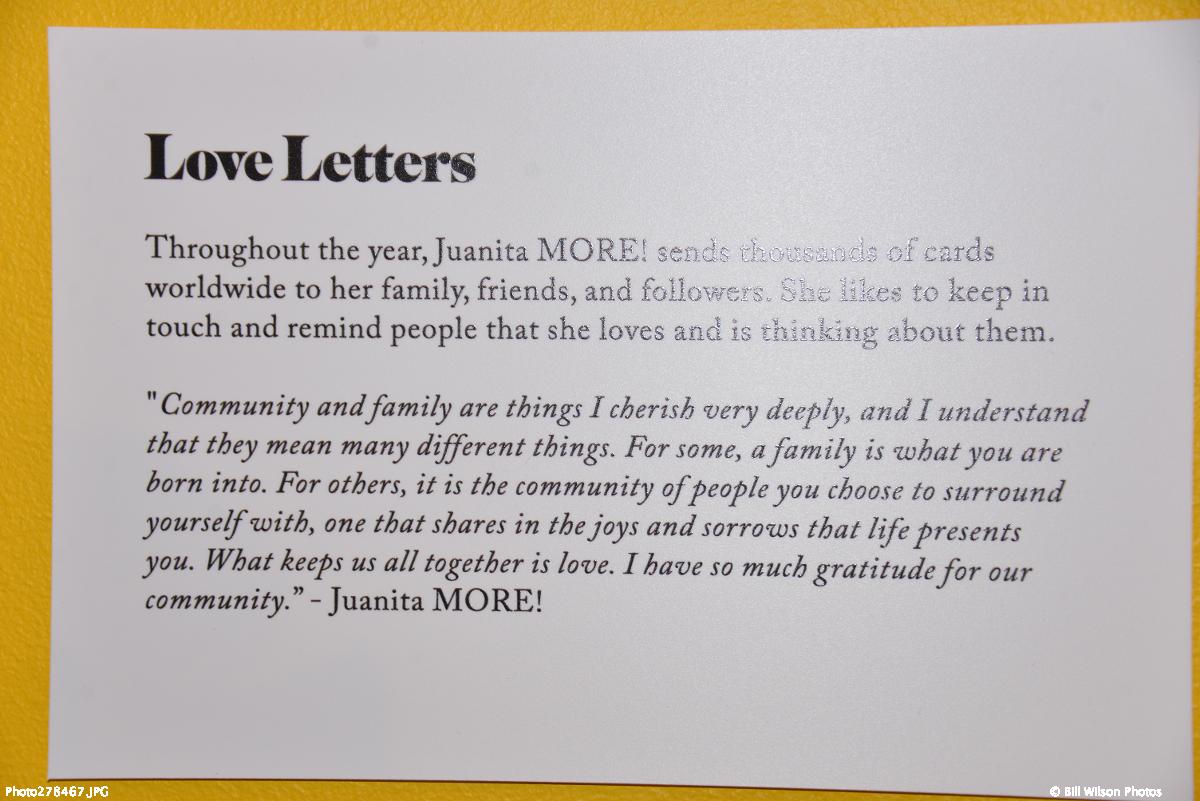 Love Letters
Throughout the year, Juanita MORE! sends thousands of cards
worldwide to her family, friends, and followers. She likes to keep in
touch and remind people that she loves and is thinking about them.
"Community and family are things I cherish very deeply, and I understand
that they mean many different things. For some, a family is what you are
born into. For others, it is the community of people you choose to surround
yourself with, one that shares in the joys and sorrows that life presents
you. What keeps us all together is love. I have so much gratitude for our
community.” - Juanita MORE!
Photo278467.JPG
© Bill Wilson Photos